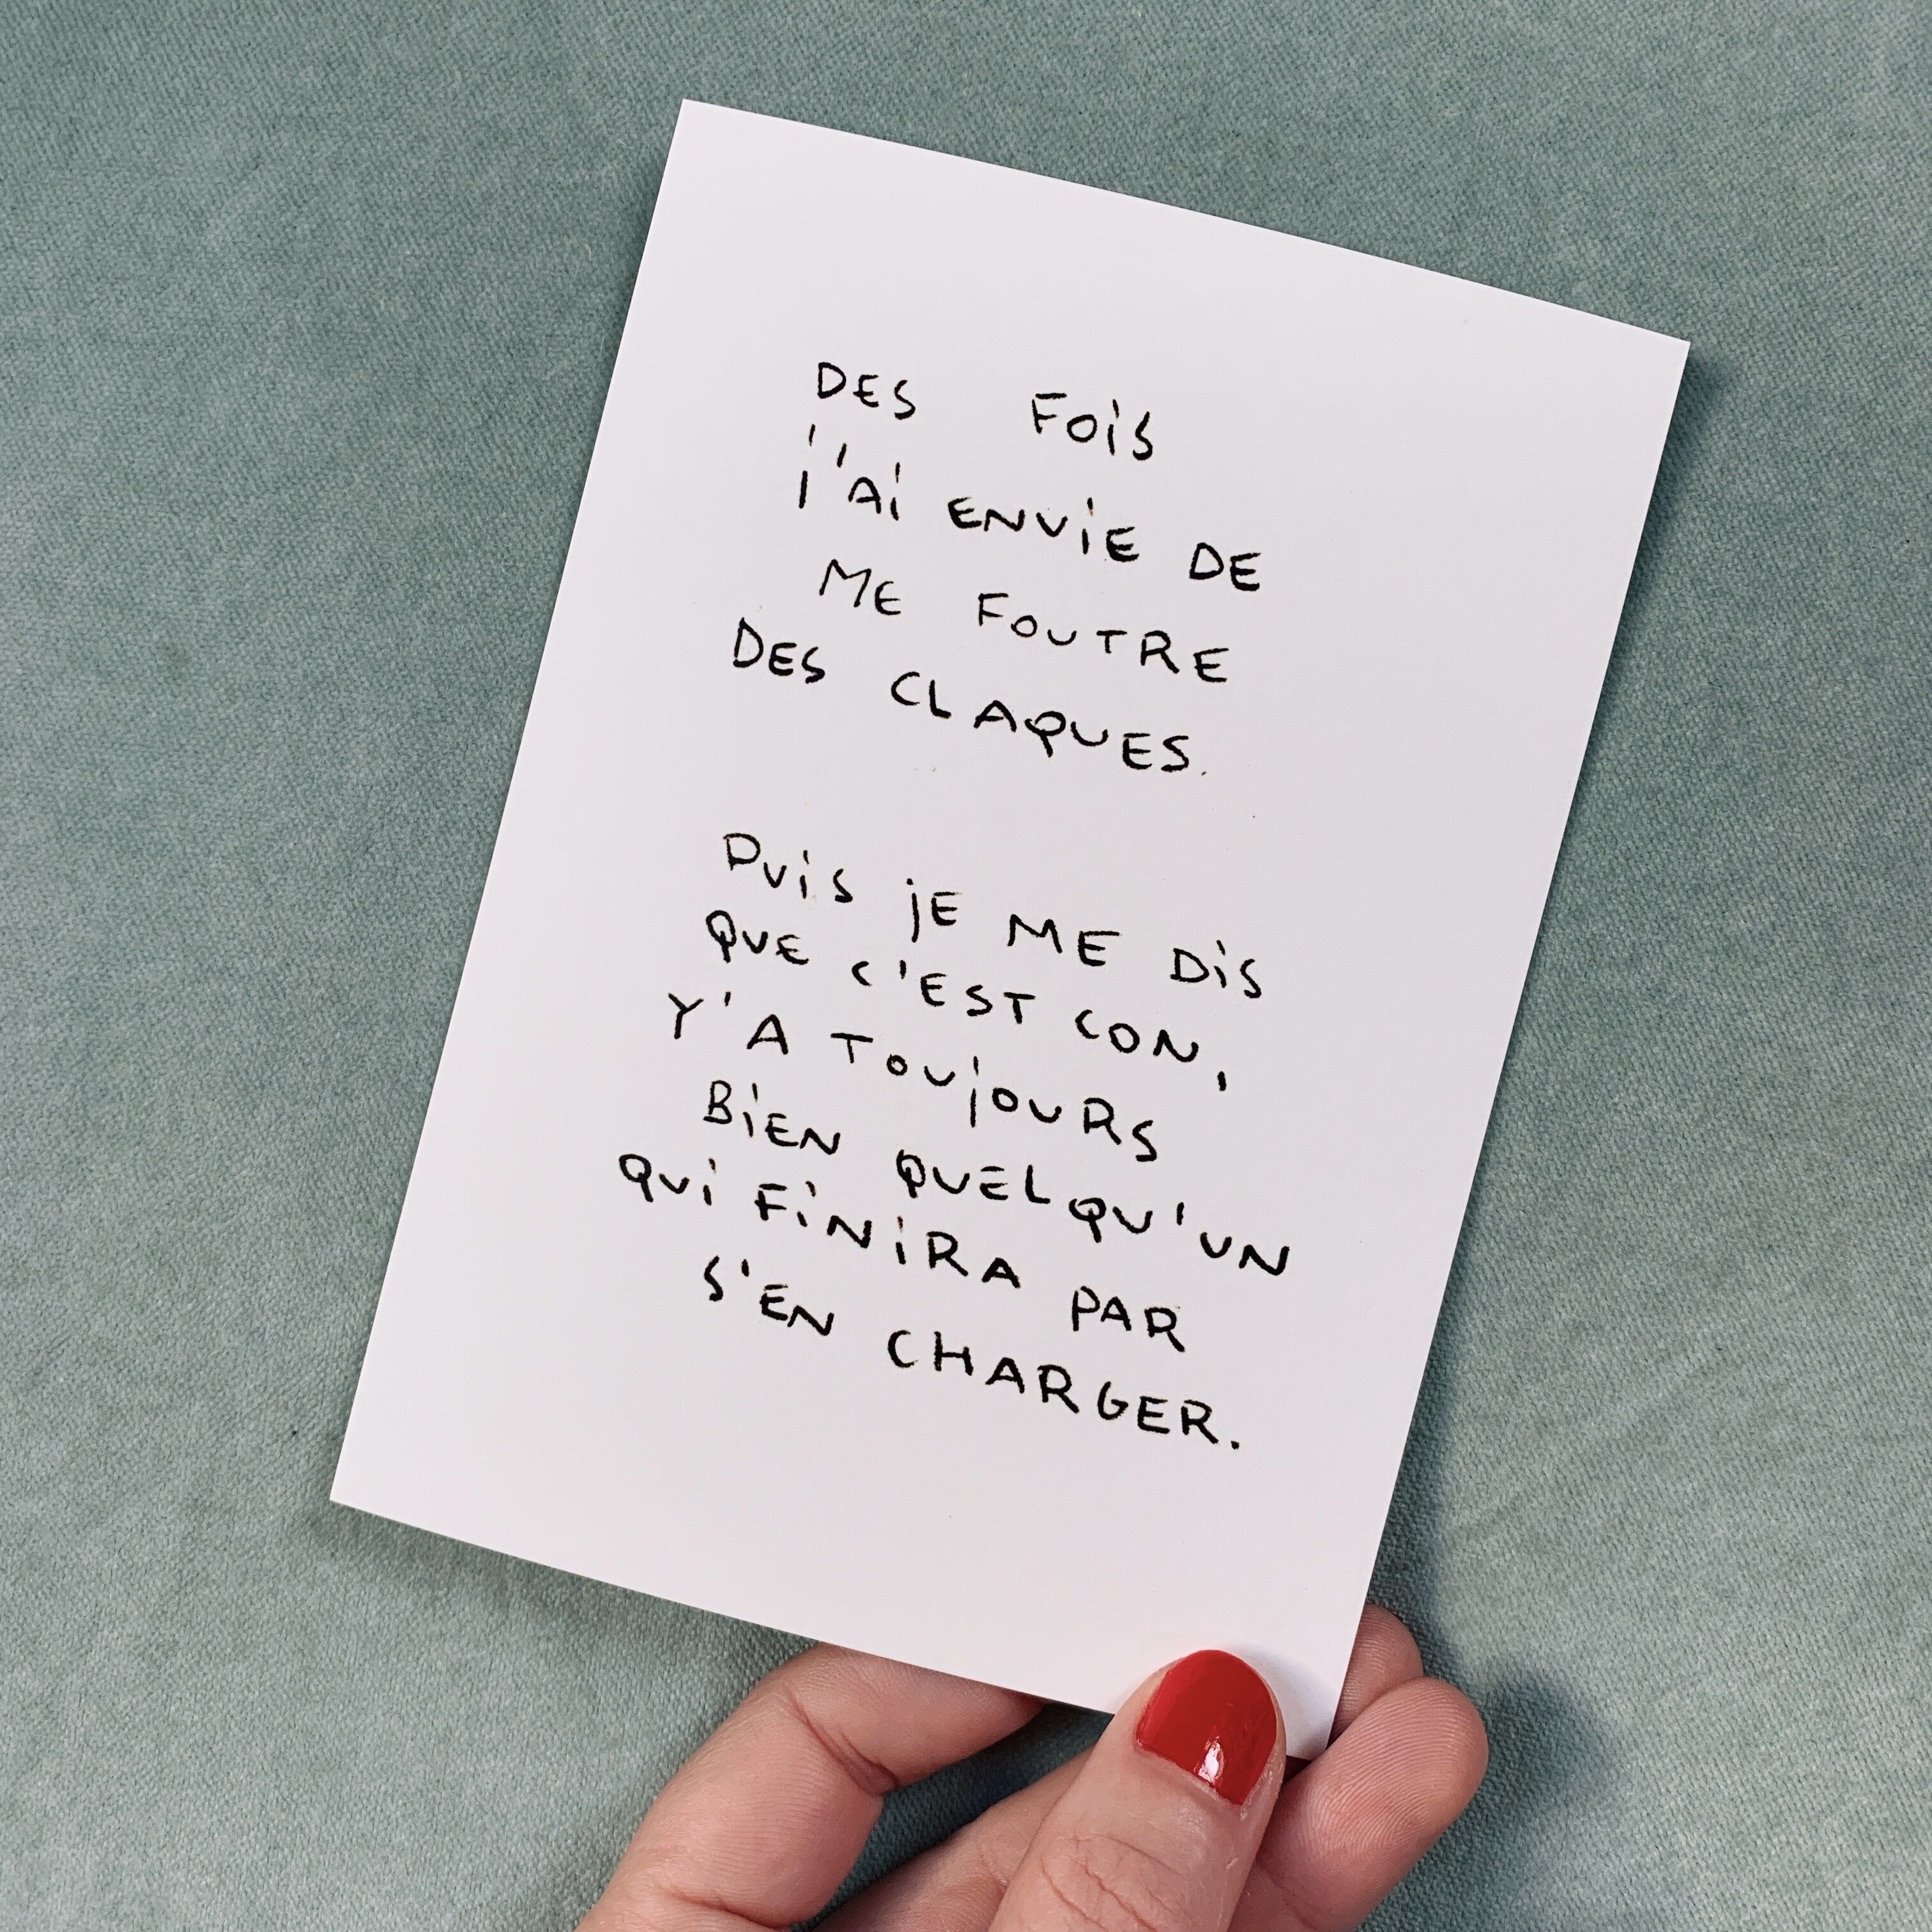 DES FOiS
j'Ai ENViE DE
ME FOUTRE
DES CLAQUES.
PUiS jE ME DiS
QUE C'EST CON,
Y'A TOUjOURS
BiEN QUELQU'UN
QUi FiNiRA PAR
S'EN CHARGER.